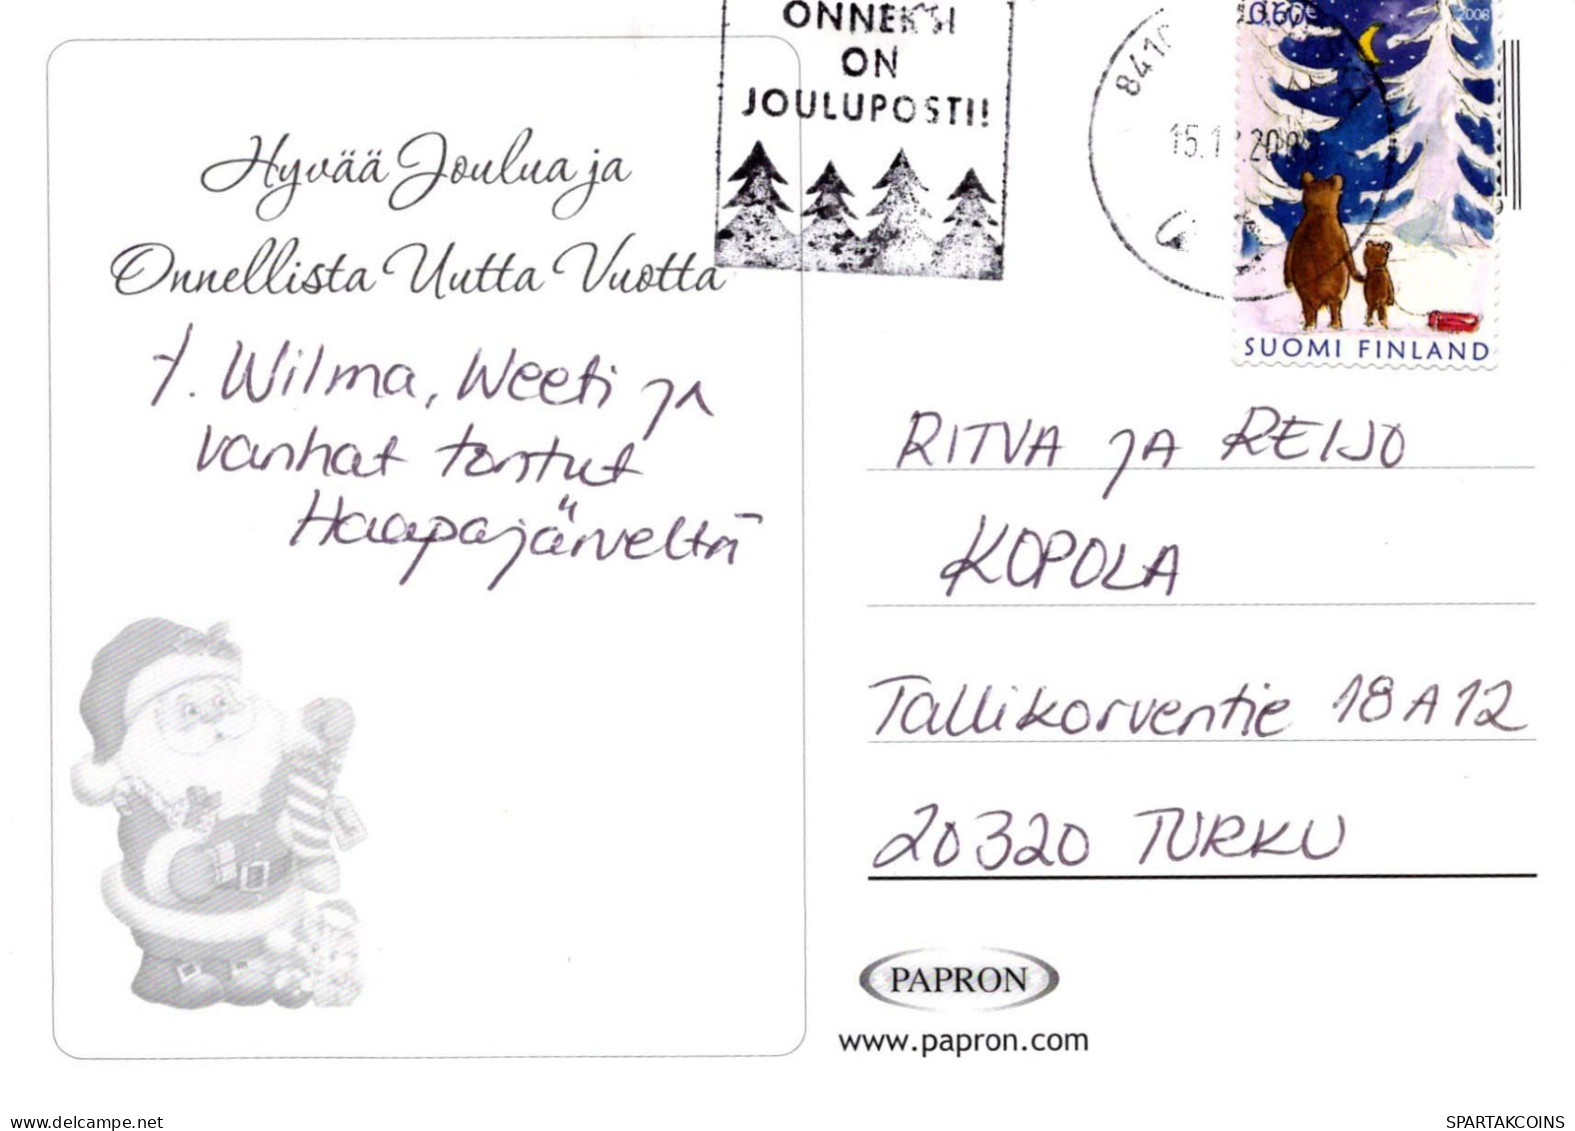 ONNEKSI
ON
JOULUPOSTI!
0.60€
2008
15.12.2008
SUOMI FINLAND
Hyvää Joulua ja
Onnellista Uutta Vuotta
t. Wilma, Weeti ja
vanhat tontut
Haapajärveltä
RITVA JA REIJO
KOPOLA
Tallikorventie 18 A 12
20320 TURKU
PAPRON
www.papron.com
www.delcampe.net
SPARTAKCOINS